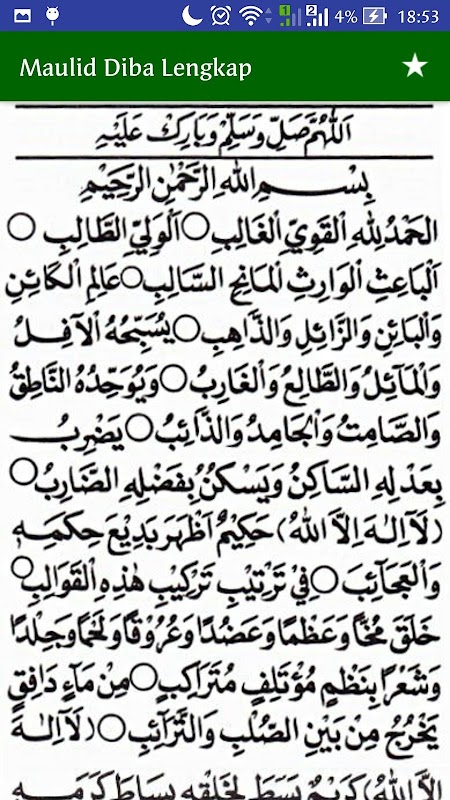 4% 18:53
Maulid Diba Lengkap
اَللّٰهُمَّ صَلِّ وَسَلِّمْ وَبَارِكْ عَلَيْهِ
بِسْمِ اللهِ الرَّحْمٰنِ الرَّحِيْمِ
اَلْحَمْدُ لِلّٰهِ الْقَوِيِّ الْغَالِبِ○اَلْوَلِيِّ الطَّالِبِ○
اَلْبَاعِثِ الْوَارِثِ الْمَانِحِ السَّالِبِ○عَالِمِ الْكَائِنِ
وَالْبَائِنِ وَالزَّائِلِ وَالذَّاهِبِ○يُسَبِّحُهُ الْاٰفِلُ
وَالْمَائِلُ وَالطَّالِعُ وَالْغَارِبُ○وَيُوَحِّدُهُ النَّاطِقُ
وَالصَّامِتُ وَالْجَامِدُ وَالذَّائِبُ○يَضْرِبُ
بِعَدْلِهِ السَّاكِنُ وَيَسْكُنُ بِفَضْلِهِ الضَّارِبُ○
(لَآ اِلٰهَ اِلَّا اللهُ) حَكِيْمٌ اَظْهَرَ بَدِيْعَ حِكَمِهِ
وَالْعَجَائِبَ○فِيْ تَرْتِيْبِ تَرْكِيْبِ هٰذِهِ الْقَوَالِبِ○
خَلَقَ مُخًّا وَعَظْمًا وَعَضُدًا وَعُرُوْقًا وَلَحْمًا وَجِلْدًا
وَشَعْرًا بِنَظْمٍ مُؤْتَلِفٍ مُتَرَاكِبٍ○مِنْ مَآءٍ دَافِقٍ
يَخْرُجُ مِنْ بَيْنِ الصُّلْبِ وَالتَّرَآئِبِ○(لَآ اِلٰهَ
اِلَّا اللهُ) كَرِيْمٌ بَسَطَ لِخَلْقِهِ بِسَاطَ كَرَمِهِ